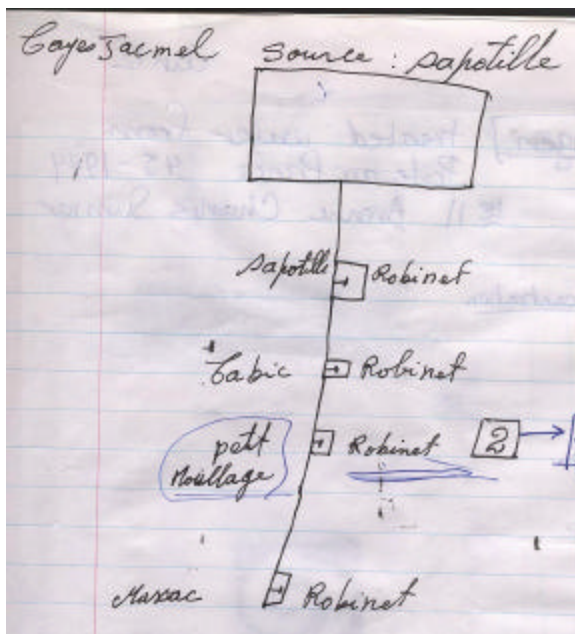 Cayes Jacmel Source : sapotille
sapotille Robinet
Cabic Robinet
petit Robinet 2
Mouillage
Robinet